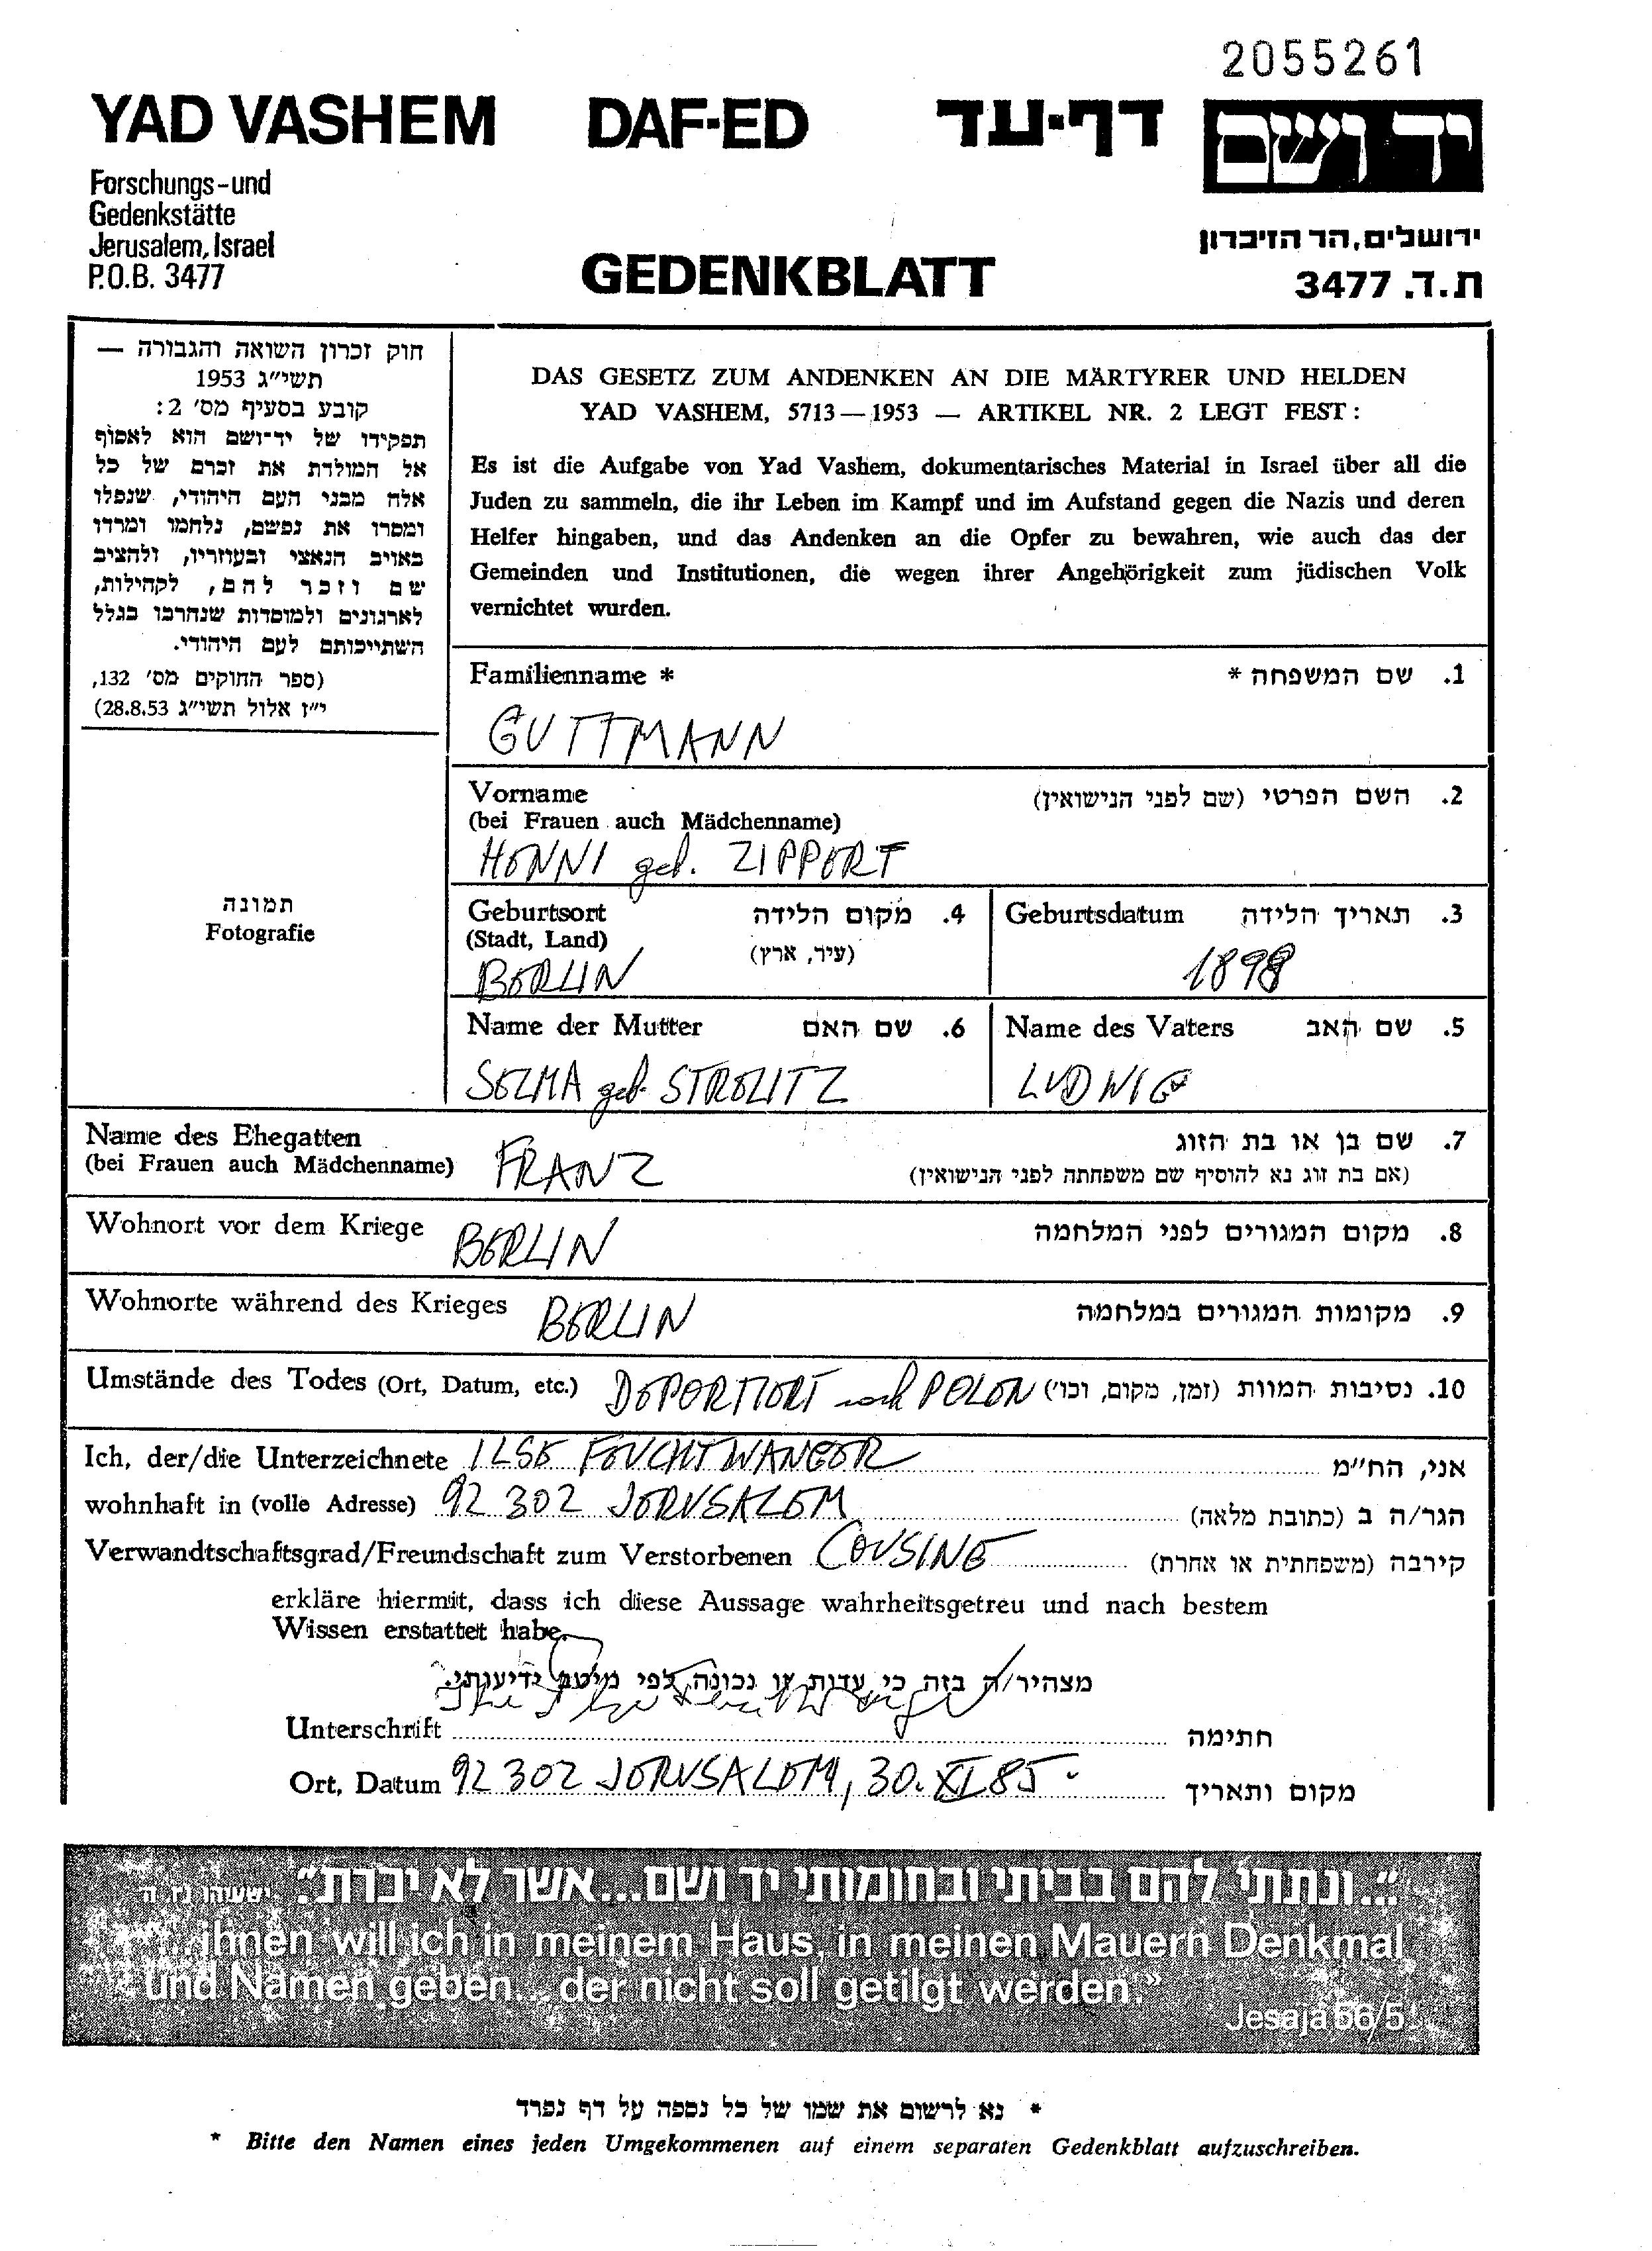 2055261
YAD VASHEM DAF-ED דף-עד יד ושם
Forschungs-und
Gedenkstätte
Jerusalem, Israel
P.O.B. 3477
ירושלים, הר הזיכרון
ת.ד. 3477
GEDENKBLATT
חוק זכרון השואה והגבורה —
תשי״ג 1953
קובע בסעיף מס׳ 2:
תפקידו של יד־ושם הוא לאסוף
אל המולדת את זכרם של כל
אלה מבני העם היהודי, שנפלו
ומסרו את נפשם, נלחמו ומרדו
באויב הנאצי ובעוזריו, ולהציב
שם וזכר להם, לקהילות,
לארגונים ולמוסדות שנחרבו בגלל
השתייכותם לעם היהודי.
(ספר החוקים מס׳ 132,
י״ז אלול תשי״ג 28.8.53)
DAS GESETZ ZUM ANDENKEN AN DIE MÄRTYRER UND HELDEN
YAD VASHEM, 5713—1953 — ARTIKEL NR. 2 LEGT FEST:
Es ist die Aufgabe von Yad Vashem, dokumentarisches Material in Israel über all die
Juden zu sammeln, die ihr Leben im Kampf und im Aufstand gegen die Nazis und deren
Helfer hingaben, und das Andenken an die Opfer zu bewahren, wie auch das der
Gemeinden und Institutionen, die wegen ihrer Angehörigkeit zum jüdischen Volk
vernichtet wurden.
Familienname * 1. שם המשפחה *
GUTTMANN
Vorname 2. השם הפרטי (שם לפני הנישואין)
(bei Frauen auch Mädchenname)
HENNI geb. ZIPPERT
תמונה
Fotografie
Geburtsort 4. מקום הלידה
(Stadt, Land) (עיר, ארץ)
BERLIN
Geburtsdatum 3. תאריך הלידה
1898
Name der Mutter 6. שם האם
SELMA geb. STRELITZ
Name des Vaters 5. שם האב
LUDWIG
Name des Ehegatten 7. שם בן או בת הזוג
(bei Frauen auch Mädchenname) FRANZ (אם בת זוג נא להוסיף שם משפחתה לפני הנישואין)
Wohnort vor dem Kriege BERLIN 8. מקום המגורים לפני המלחמה
Wohnorte während des Krieges BERLIN 9. מקומות המגורים במלחמה
Umstände des Todes (Ort, Datum, etc.) DEPORTIERT nach POLEN 10. נסיבות המוות (זמן, מקום, וכו׳)
Ich, der/die Unterzeichnete ILSE FEUCHTWANGER אני, הח״מ
wohnhaft in (volle Adresse) 92 302 JERUSALEM הגר/ה ב (כתובת מלאה)
Verwandtschaftsgrad/Freundschaft zum Verstorbenen COUSINE קירבה (משפחתית או אחרת)
erkläre hiermit, dass ich diese Aussage wahrheitsgetreu und nach bestem
Wissen erstattet habe.
מצהיר/ה בזה כי עדות זו נכונה לפי מיטב ידיעותי.
Unterschrift Ilse Feuchtwanger חתימה
Ort, Datum 92 302 JERUSALEM, 30. XI. 85. מקום ותאריך
״...ונתתי להם בביתי ובחומותי יד ושם...אשר לא יכרת״. ישעיהו נו, ה
"...ihnen will ich in meinem Haus, in meinen Mauern Denkmal
und Namen geben... der nicht soll getilgt werden."
Jesaja 56/5
* נא לרשום את שמו של כל נספה על דף נפרד
* Bitte den Namen eines jeden Umgekommenen auf einem separaten Gedenkblatt aufzuschreiben.